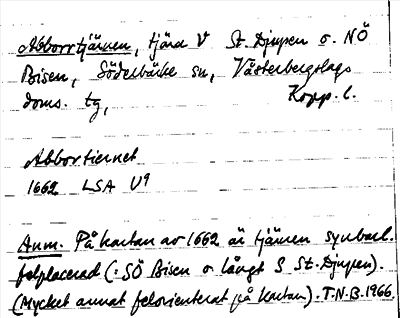 Abborrtjärnen, tjärn V St. Djupen o. NÖ
Bisen, Söderbärke sn, Västerbergslags
doms. tg, Kopp. l.
Abbortiernet
1662 LSA U9
Anm. På kartan av 1662 är tjärnen synbarl.
felplacerad (: SÖ Bisen o långt S St. Djupen).
(Mycket annat felorienterat på kartan). T.N.B. 1966.